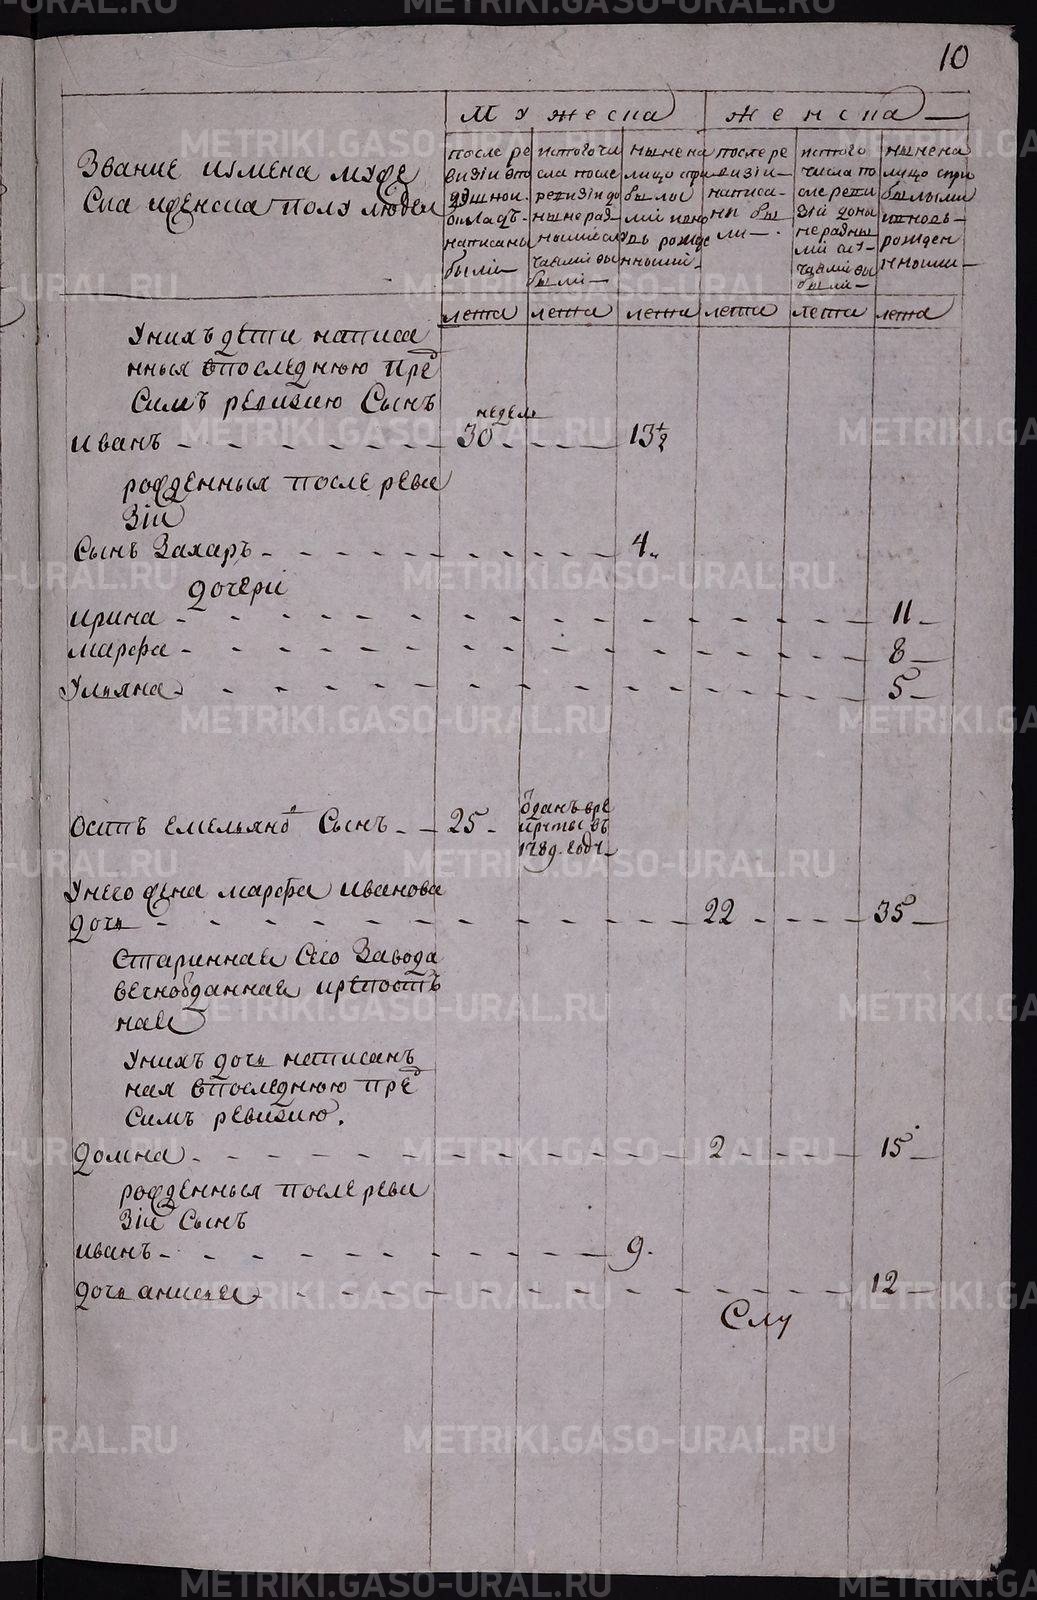 10
Мужеска
женска
Звание и имена муже
ска и женска полу людей
после ре
визии в по
душной
окладъ
написаны
были
ис того чи
сла после
ревизии до
ныне раз
ными слу
чаями вы
были
ныне на
лицо при
былы
ми и но
въ рожде
нными
после ре
визии
написа
ны бы
ли
ис того
числа по
сле реви
зіи доны
не разны
ми слу
чаями вы
были
ныне на
лицо при
былыми
и новь
рожден
нными
лета лета лета лета лета лета
У нихъ дети написа
нныя в последнюю пред
симъ ревизию Сынъ
недель
иванъ 30 13 1/2
рожденныя после реви
зіи
Сынъ Захаръ 4
дочери
ирина 11
марфа 8
Ульяна 5
осипъ емельяно в Сынъ 25
отданъ в ре
круты въ
1789. году
У него жена марфа иванова
дочь 22 35
Стариннае Сего Завода
вечноотданнае крепостъ
нае
У нихъ дочь написанъ
ная в последнюю пред
симъ ревизию.
домна 2 15
рожденныя после реви
зіи Сынъ
иванъ 9.
дочь анисье 12
Слу
METRIKI.GASO-URAL.RU